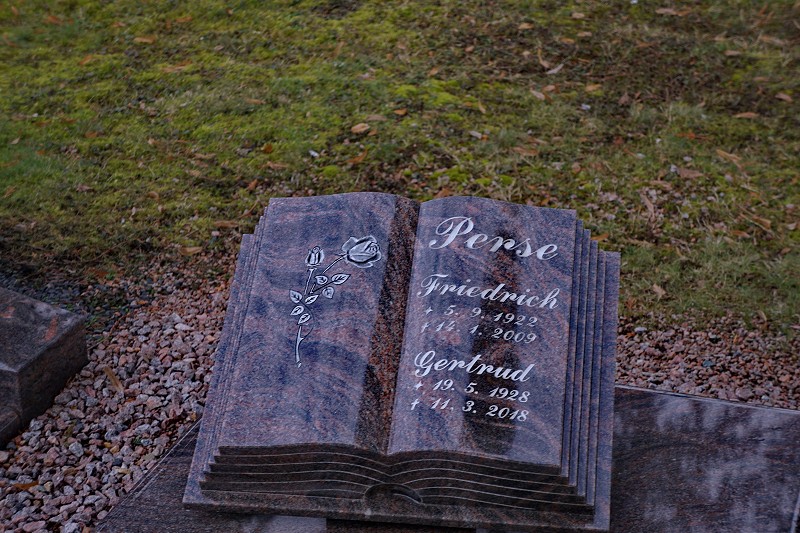 Perse
Friedrich
* 5. 9. 1922
† 14. 1. 2009
Gertrud
* 19. 5. 1928
† 11. 3. 2018